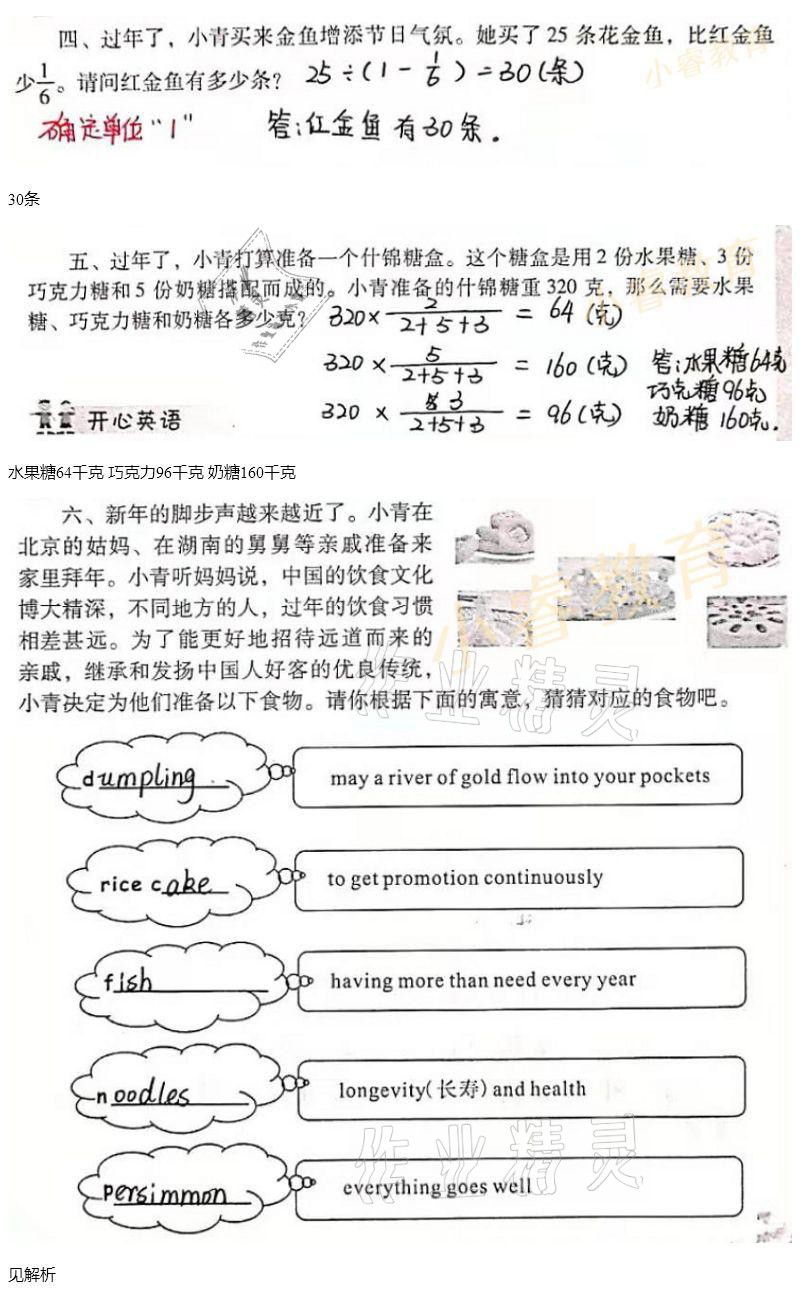 四、过年了，小青买来金鱼增添节日气氛。她买了 25 条花金鱼，比红金鱼
少1/6。请问红金鱼有多少条？ 25÷(1-1/6)=30(条)
确定单位“1” 答:红金鱼有30条.
小睿教育
30条
五、过年了，小青打算准备一个什锦糖盒。这个糖盒是用 2 份水果糖、3 份
巧克力糖和 5 份奶糖搭配而成的。小青准备的什锦糖重 320 克，那么需要水果
糖、巧克力糖和奶糖各多少克？ 320×2/(2+5+3)=64(克)
320×5/(2+5+3)=160(克) 答:水果糖64克
巧克糖96克
320×3/(2+5+3)=96(克) 奶糖160克.
开心英语
小睿教育
水果糖64千克 巧克力96千克 奶糖160千克
六、新年的脚步声越来越近了。小青在
北京的姑妈、在湖南的舅舅等亲戚准备来
家里拜年。小青听妈妈说，中国的饮食文化
博大精深，不同地方的人，过年的饮食习惯
相差甚远。为了能更好地招待远道而来的
亲戚，继承和发扬中国人好客的优良传统，
小青决定为他们准备以下食物。请你根据下面的寓意，猜猜对应的食物吧。
小睿教育
作业精灵
dumpling may a river of gold flow into your pockets
rice cake to get promotion continuously
fish having more than need every year
noodles longevity(长寿) and health
作业精灵
persimmon everything goes well
见解析